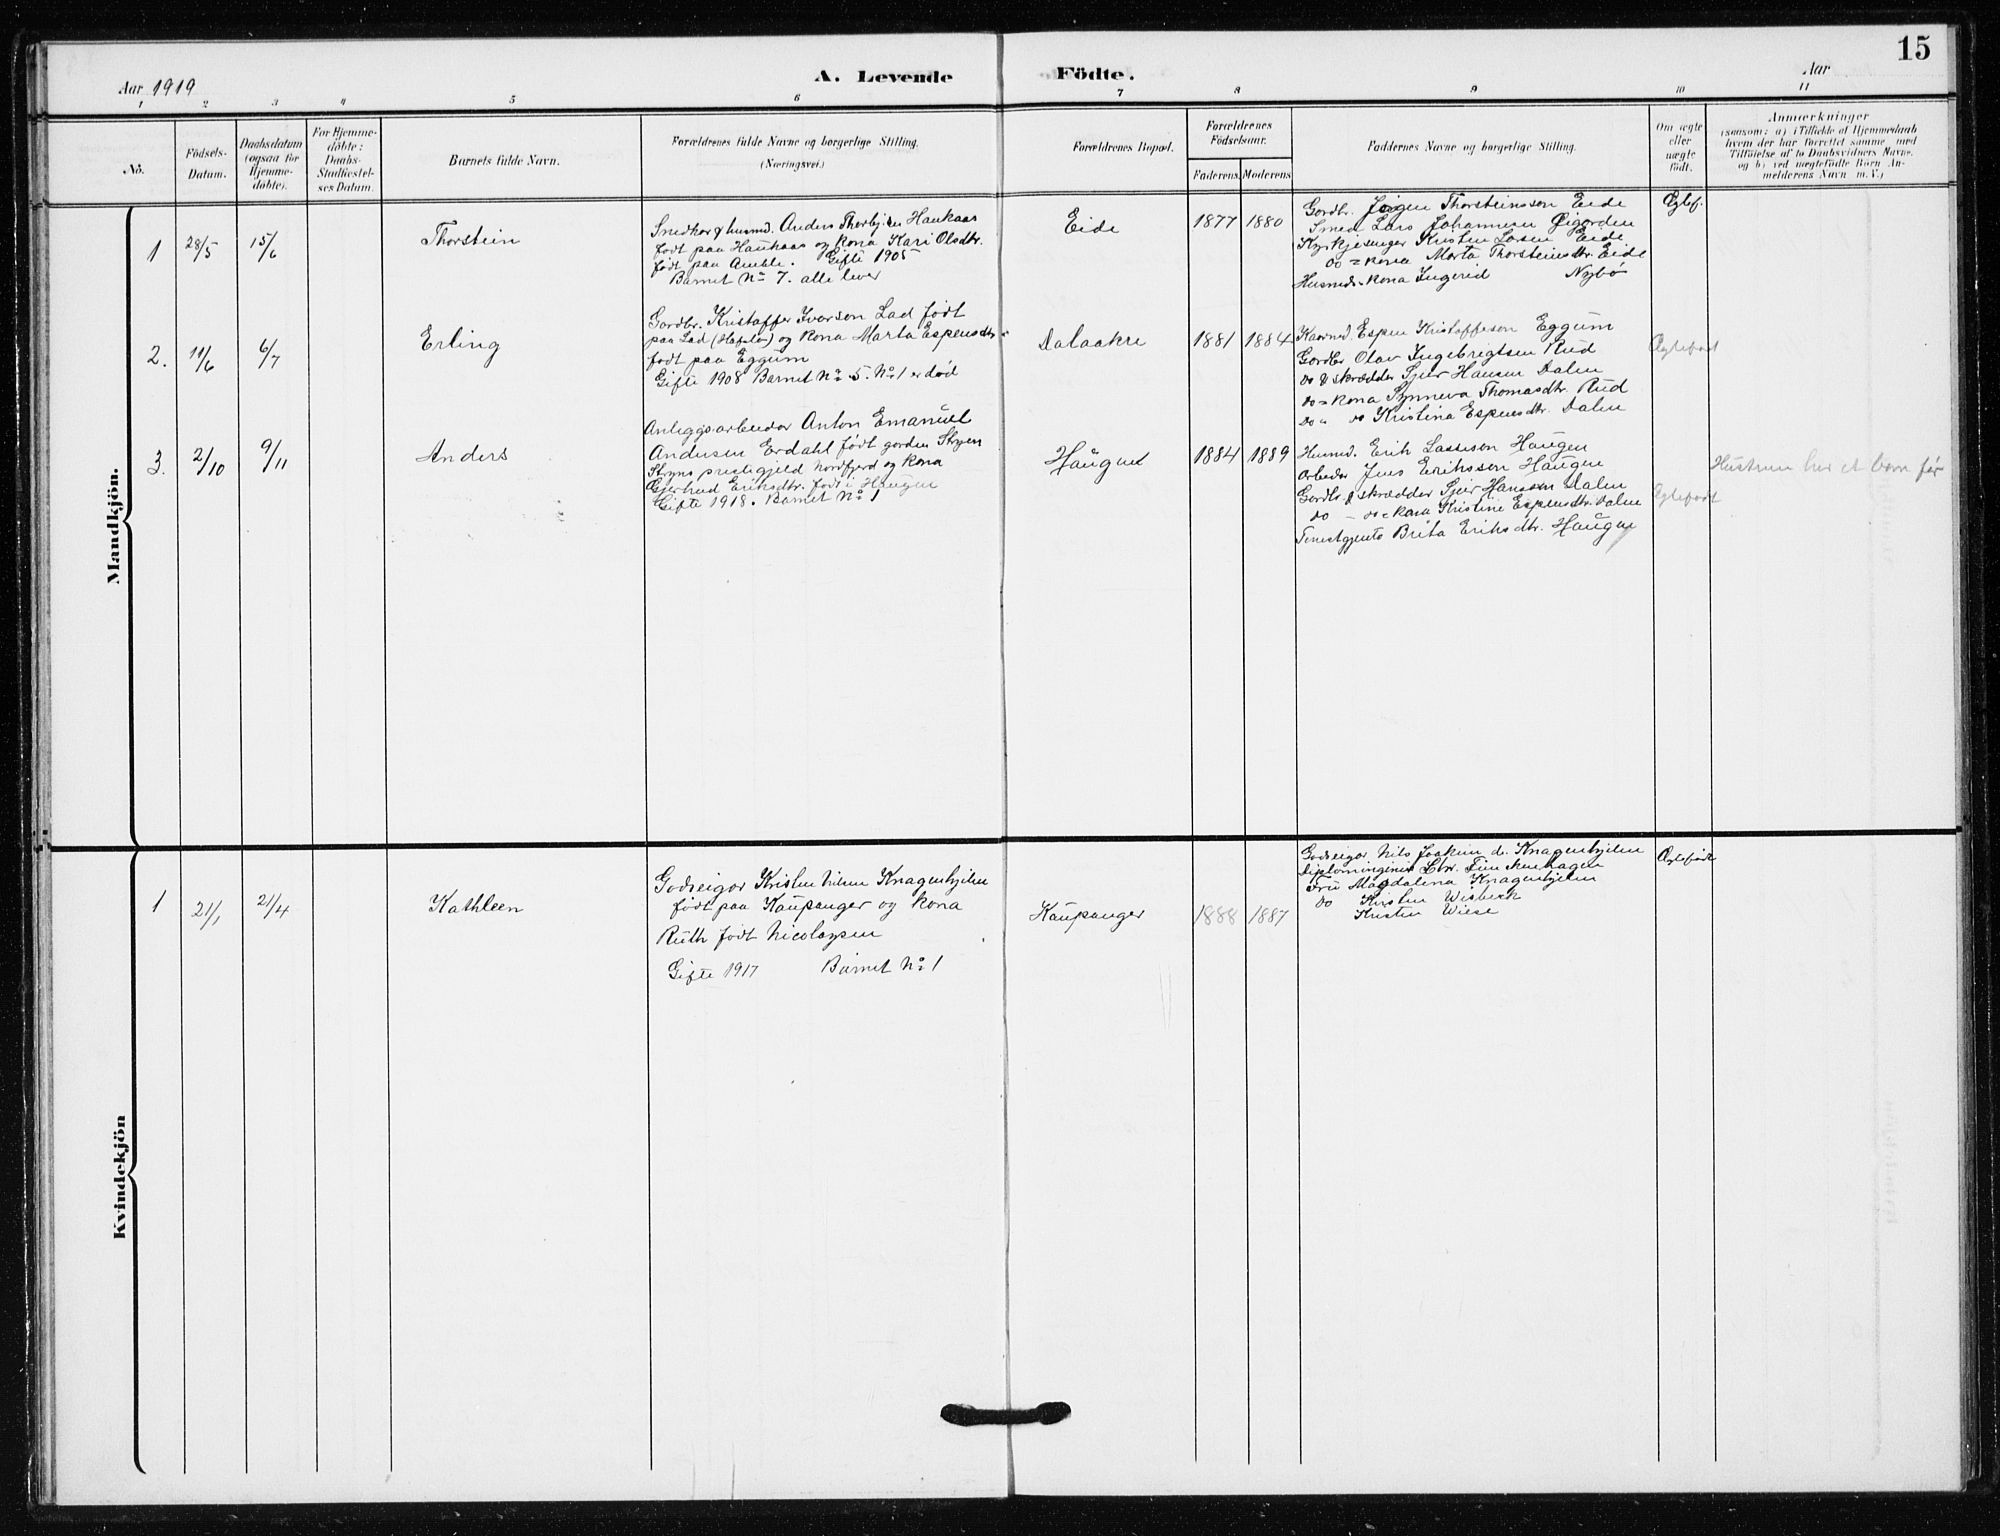 15
Aar 1919
A. Levende Födte.
Aar
1 2 3 4 5 6 7 8 9 10 11
No.
Födsels-
Datum.
Daabsdatum
(ogsaa for
Hjemme-
döbte).
For Hjemme-
döbte:
Daabs-
Stadfæstel-
ses Datum.
Barnets fulde Navn.
Forældrenes fulde Navne og borgerlige Stilling.
(Næringsvei.)
Forældrenes Bopæl.
Forældrenes
Födselsaar.
Faderens. Moderens
Faddernes Navne og borgerlige Stilling.
Om ægte
eller
uægte
födt.
Anmærkninger
(saasom: a) i Tilfælde af Hjemmedaab
hvem der har forrettet samme, med
Tilföielse af to Daabsvidners Navne.
og b) ved uægtefödte Börn An-
melderens Navn m. V.)
Mandkjön.
1 28/5 15/6 Thorstein
Snedker & husmd. Anders Thorbjrsn Haukaas
født paa Haukaas og kona Kari Olsdtr.
født paa Amble. Gifte 1905
Barnet No 7. alle lever
Eide 1877 1880
Gordbr. Jørgen Thorsteinsson Eide
Smed Lars Johannesen Øigarden
Kyrkjesanger Kristen Larsen Eide
do = kona Marta Thorsteinsdtr. Eide
Husmds-kona Ingerid Nybø
Ægtef.
2. 11/6 6/7 Erling
Gordbr. Kristoffer Ivarson Lad født
paa Lad (Hafslo) og kona Marta Espensdtr
født paa Eggum
Gifte 1908 Barnet No 5. No 1 er død
Dalaakre 1881 1884
Kaarmd. Espen Kristoffeson Eggum
Gordbr Olav Ingebrigtsen Rud
do & skrædder Sjur Hansen Dalen
do = kona Synneva Thomasdtr. Rud
do " do Kristina Espensdtr. Dalen
Ægtefødt
3. 2/10 9/11 Anders
Anleggsarbeidar Anton Emanuel
Andersen Erdahl født garden Stryn
Stryns prestegjeld Nordfjord og kona
Gjertrud Eriksdtr. født i Haugen
Gifte 1918. Barnet No 1
Haugen 1884 1889
Husmd. Erik Lasseson Haugen
Arbeider Jens Eriksson Haugen
Gordbr & skrædder Sjur Hansson Dalen
do - do = kona Kristine Espensdtr. Dalen
Tenestgjenta Brita Eriksdtr. Haugen
Ægtefødt
Hustruen har et barn før
Kvindekjön
1 21/1 21/4 Kathleen
Godseigar Kristen Nilsen Knagenhjelm
født paa Kaupanger og kona
Ruth født Nicolaysen
Gifte 1917 Barnet No 1
Kaupanger 1888 1887
Godseigar Nils Joakim d. Knagenhjelm
Diplomingeniør Chr. Finckenhagen
Fru Magdalena Knagenhjelm
do Kirsten Wisbech
Kristen Wiese
Ægtefødt